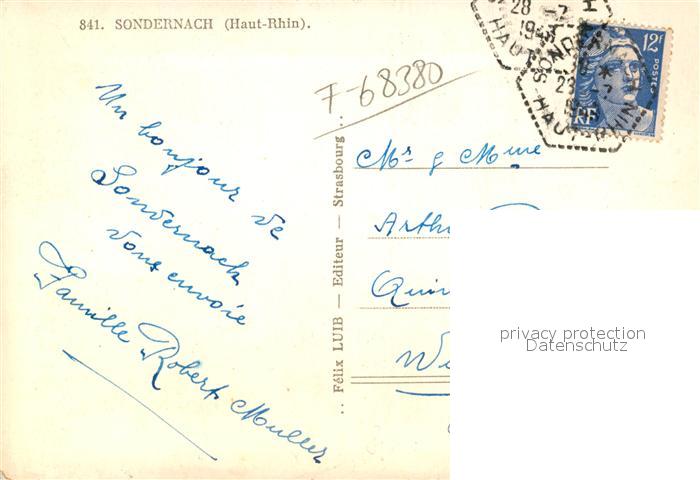 841. SONDERNACH (Haut-Rhin).
F-68380
Un bonjour de
Sondernach
vous envoie
Famille Robert Muller
.: Félix LUIB — Editeur — Strasbourg :.
28 -7
194
HAUT
SONDERNACH
HAUT-RHIN
12F
POSTES
RF
Mr & Mme
Arth
Quin
We
privacy protection
Datenschutz